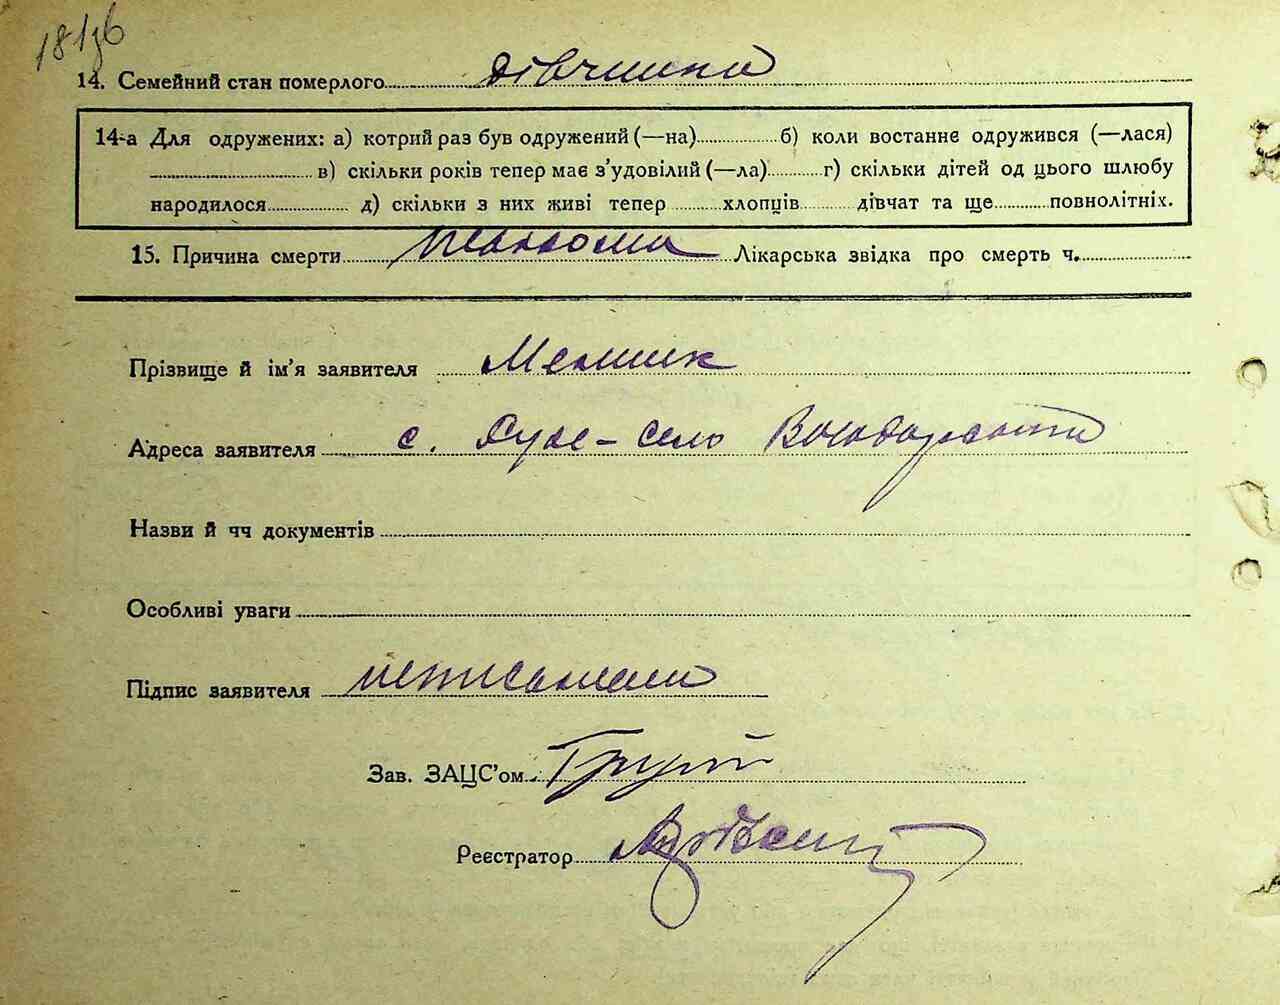 14. Семейний стан померлого дівчина
14-а Для одружених: а) котрий раз був одружений (—на) б) коли востаннє одружився (—лася)
в) скільки років тепер має з’удовілий (—ла) г) скільки дітей од цього шлюбу
народилося д) скільки з них живі тепер хлопців дівчат та ще повнолітніх.
15. Причина смерти Лікарська звідка про смерть ч.
Прізвище й ім’я заявителя Мельник
Адреса заявителя с. село
Назви й чч документів
Особливі уваги
Підпис заявителя неписьменна
Зав. ЗАЦС’ом
Реєстратор